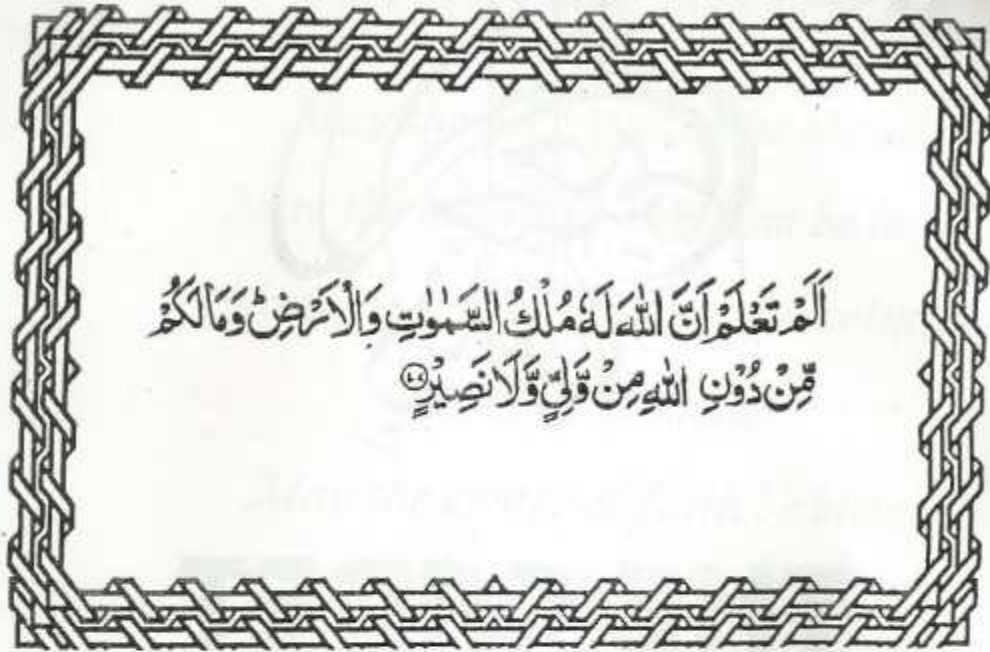 اَلَمْ تَعْلَمْ اَنَّ اللّٰهَ لَهٗ مُلْكُ السَّمٰوٰتِ وَالْاَرْضِ ؕ وَمَا لَكُمْ
مِّنْ دُوْنِ اللّٰهِ مِنْ وَّلِيٍّ وَّلَا نَصِيْرٍ